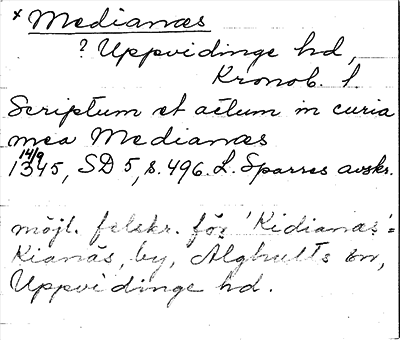 x Medianæs
? Uppvidinge hd,
Kronob. l.
Scriptum et actum in curia
mea Medianæs
14/9
1345, SD 5, s. 496. L. Sparres avskr.
möjl. felskr. för 'Kidianæs' =
Kianäs, by, Alghults sn,
Uppvidinge hd.